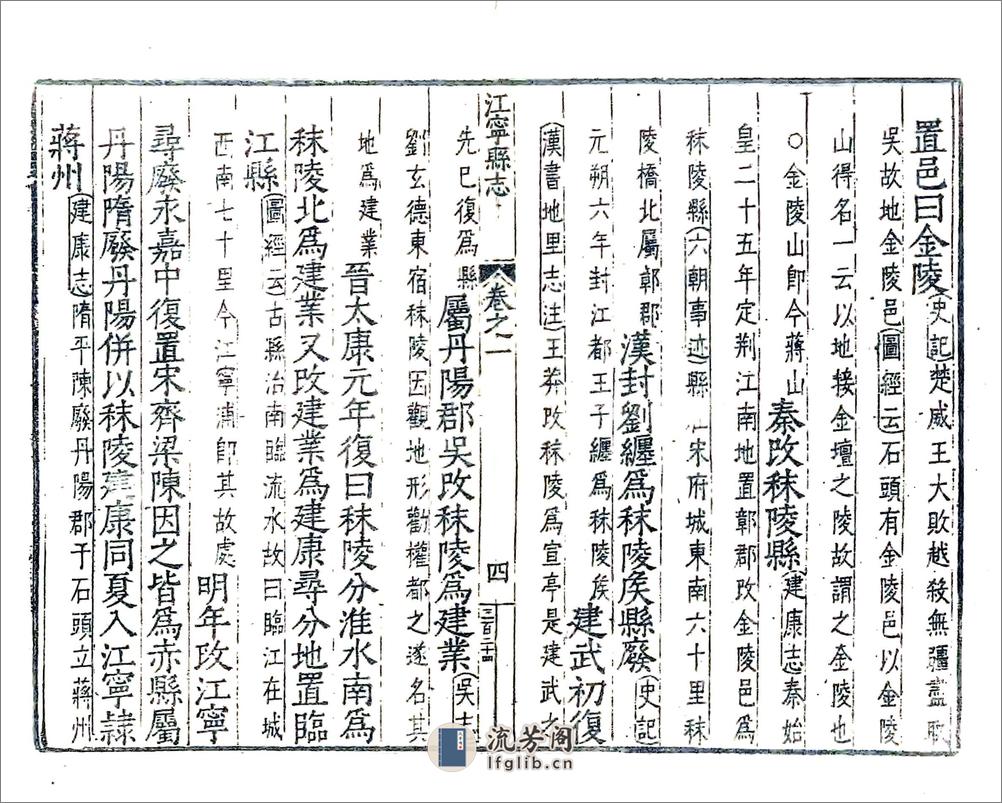 置邑曰金陵史記楚威王大敗越殺無疆盡取
吳故地金陵邑圖經云石頭有金陵邑以金陵
山得名一云以地接金壇之陵故謂之金陵也
○金陵山卽今蔣山秦改秣陵縣建康志秦始
皇二十五年定荆江南地置鄣郡改金陵邑爲
秣陵縣六朝事迹縣在宋府城東南六十里秣
陵橋北屬鄣郡漢封劉纏爲秣陵矦縣廢史記
元朔六年封江都王子纏爲秣陵矦建武初復
漢書地里志注王莽改秣陵爲宣亭是建武之
江寧縣志 卷之一 四 三百二十四
先已復爲縣屬丹陽郡吳改秣陵爲建業吳志
劉玄德東宿秣陵因觀地形勸權都之遂名其
地爲建業晉太康元年復曰秣陵分淮水南爲
秣陵北爲建業又改建業爲建康尋分地置臨
江縣圖經云古縣治南臨流水故曰臨江在城
西南七十里今江寧浦卽其故處明年改江寧
尋廢永嘉中復置宋齊梁陳因之皆爲赤縣屬
丹陽隋廢丹陽併以秣陵建康同夏入江寧隷
蔣州建康志隋平陳廢丹陽郡于石頭立蔣州
流芳阁
lfglib.cn